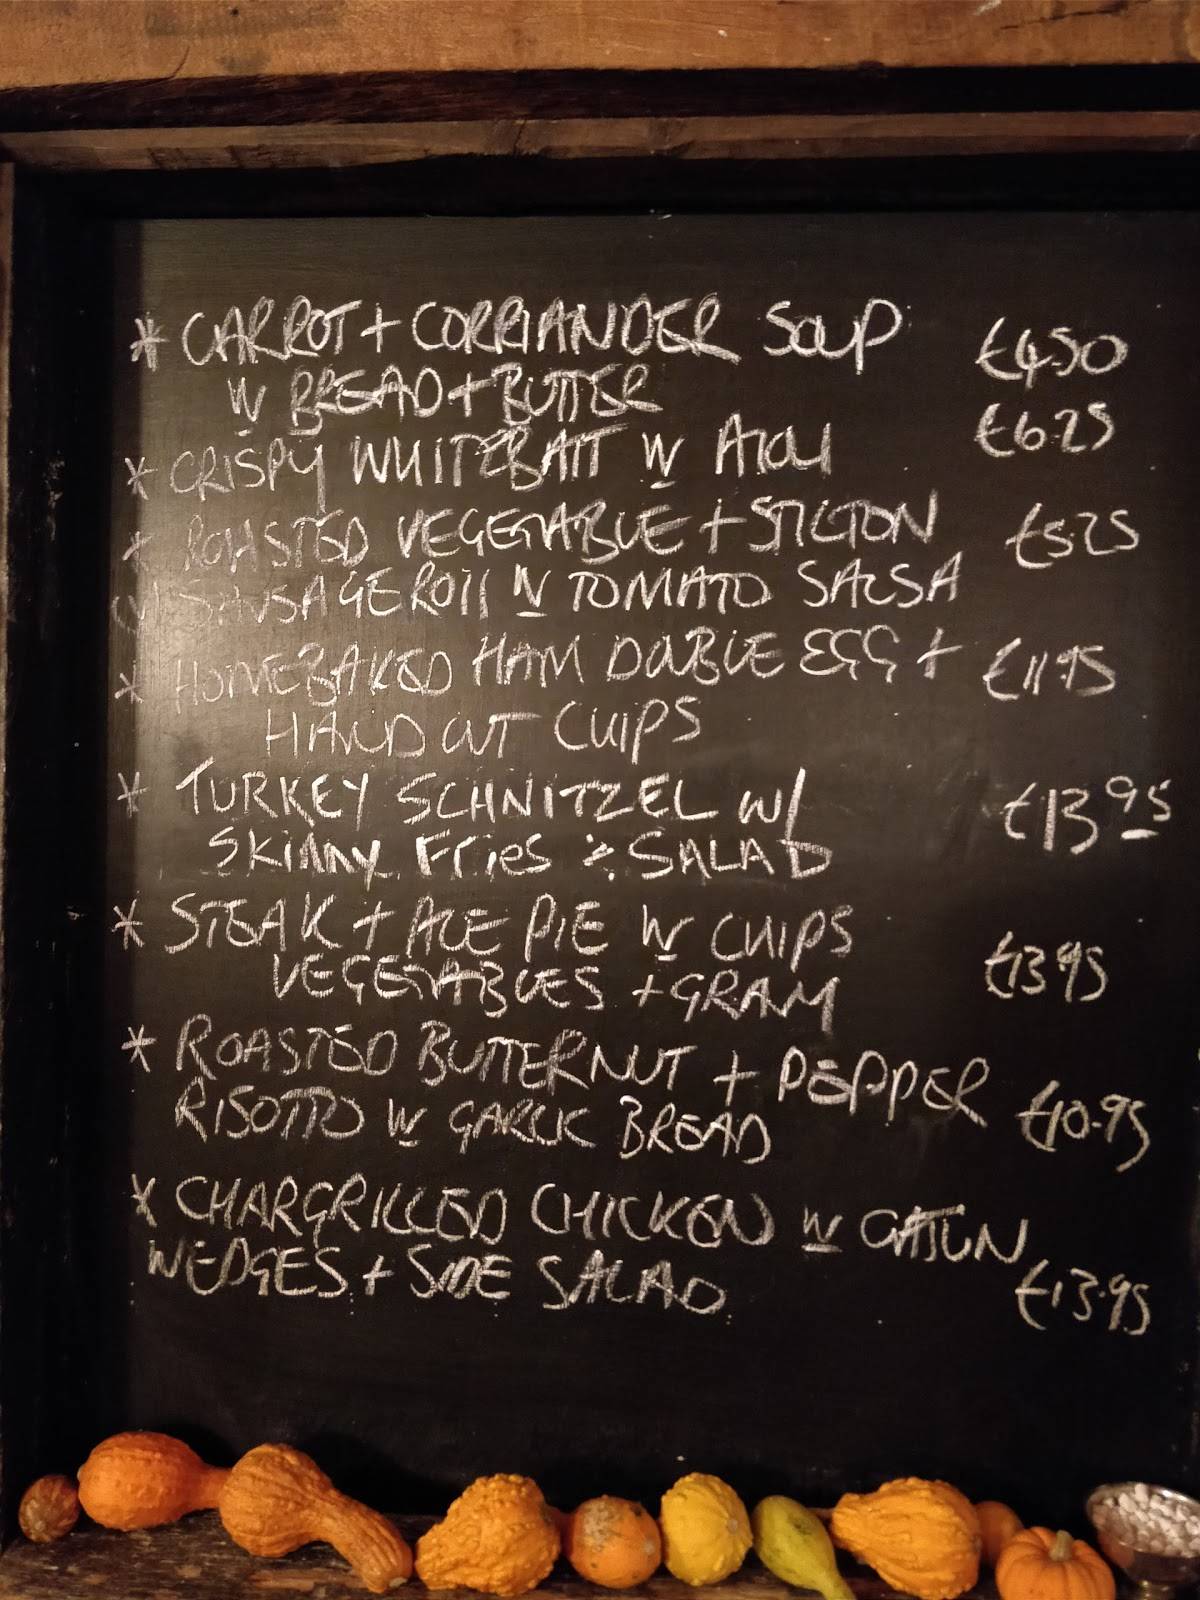 * CARROT + CORRIANDER SOUP £4.50
W BREAD + BUTTER
* CRISPY WHITEBAIT W AIOLI £6.25
* ROASTED VEGETABLE + STILTON £5.25
(V) SAUSAGE ROLL W TOMATO SALSA
* HOMEBAKED HAM DOUBLE EGG + £11.95
HAND CUT CHIPS
* TURKEY SCHNITZEL W/ £13.95
SKINNY FRIES & SALAD
* STEAK + ALE PIE W CHIPS
VEGETABLES + GRAVY £13.95
* ROASTED BUTTERNUT + PEPPER
RISOTTO W GARLIC BREAD £10.95
* CHARGRILLED CHICKEN W CAJUN
WEDGES + SIDE SALAD £13.95